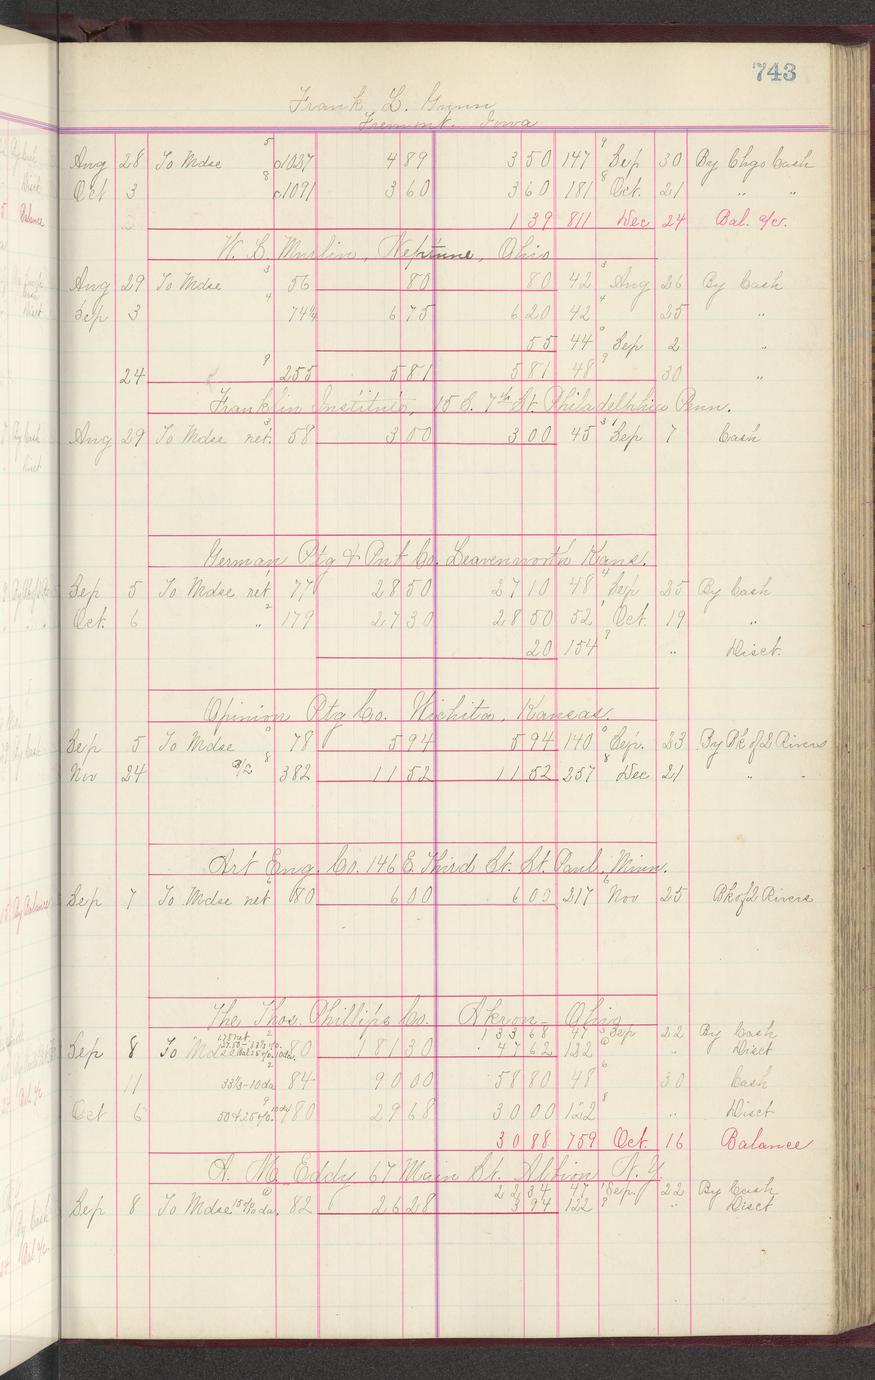 743
Frank L. Gunn
Fremont. Iowa
Aug 28 To Mdse 5 c1027 4 89 3 50 147 9 Sep 30 By Chgo Cash
Oct 3 8 c1091 3 60 3 60 181 8 Oct. 21 " "
1 39 811 Dec 24 Bal. a/c.
Neptune, Ohio
Aug 29 To Mdse 3 56 80 80 42 3 Aug 26 By Cash
Sep 3 4 74¼ 6 75 6 20 42 4 25 "
55 44 0 Sep 2 "
24 9 255 5 81 5 81 48 9 30 "
Franklin Institute, 15 S. 7th St. Philadelphia Penn.
Aug 29 To Mdse net. 3 58 3 00 3 00 45 3 Sep 7 Cash
German Ptg & Pub Co. Leavenworth Kans.
Sep 5 To Mdse net 77 28 50 27 10 48 4 Sep 25 By Cash
Oct. 6 " 2 179 27 30 28 50 52 1 Oct. 19 "
20 154 9 " Disct.
Opinion Ptg Co. Wichita, Kansas.
Sep 5 To Mdse 0 78 5 94 5 94 140 0 Sep. 23 By Bk of 2 Rivers
Nov 24 a/c 8 382 11 52 11 52 257 8 Dec 21 " "
Art Eng. Co. 146 E. Third St. St. Paul, Minn.
Sep 7 To Mdse net 6 80 6 00 6 00 217 6 Nov 25 Bk of 2 Rivers
The Thos. Phillips Co. Akron - Ohio
133 68 47 3 Sep 22 By Cash
Sep 8 To Mdse 2 80 181 30 47 62 122 " Disct
11 33⅓-10 da 2 84 90 00 58 80 48 6 30 Cash
Oct 6 50 & 25%. 9 180 29 68 30 00 122 8 " Disct
30 88 759 Oct. 16 Balance
A. M. Eddy 67 Main St. Albion N.Y.
22 34 47 1 Sep. 22 By Cash
Sep 8 To Mdse 15% 10 da. 82 26 28 3 94 122 9 " Disct